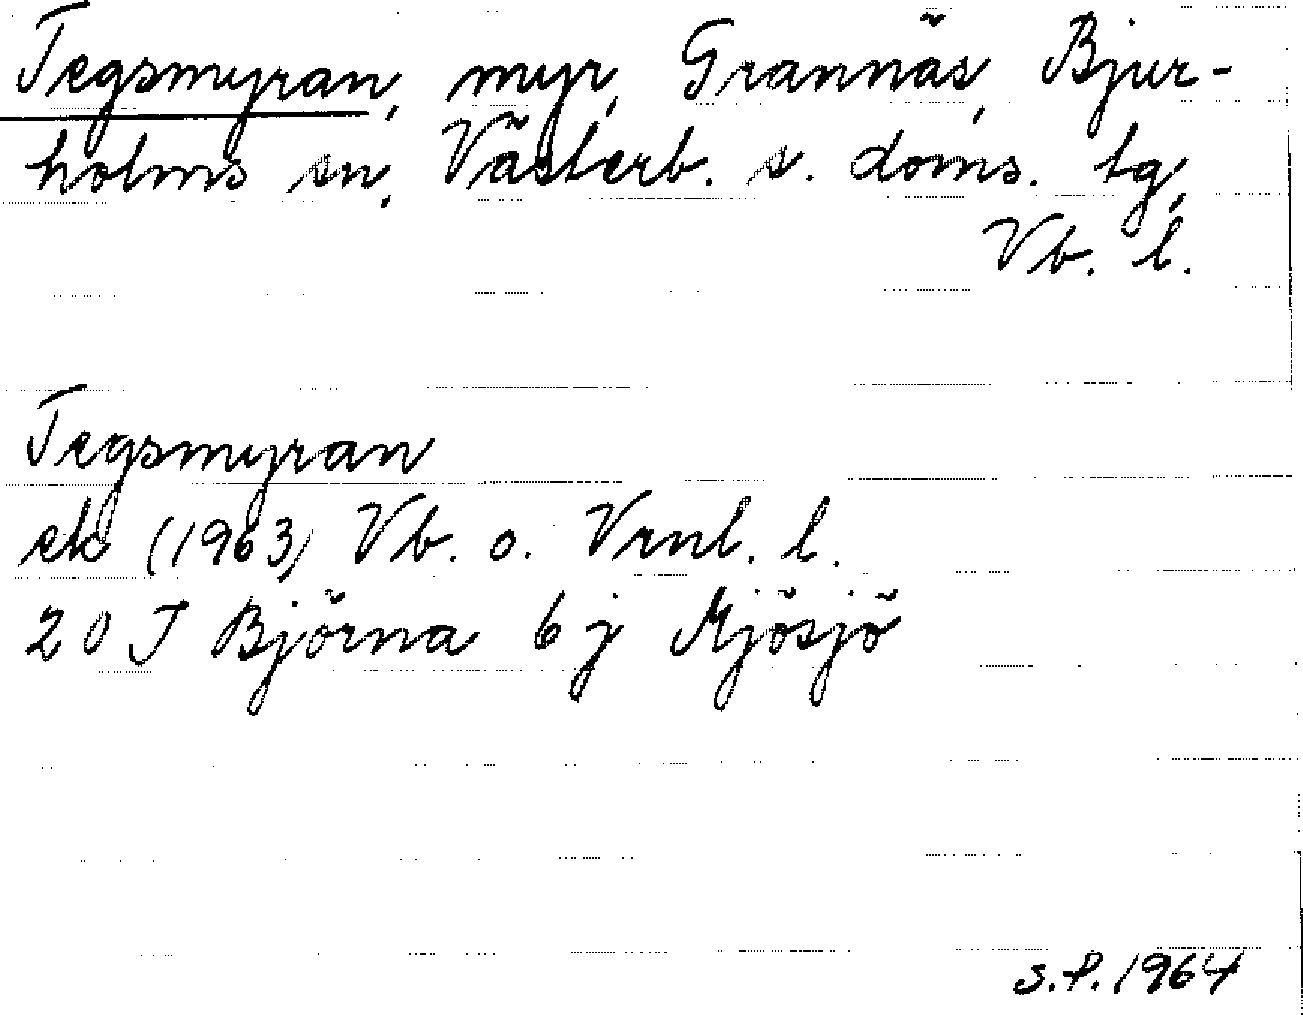 Tegsmyran, myr, Grannäs, Bjur-
holms sn, Västerb. s. doms. tg,
Vb. l.
Tegsmyran
ek (1963) Vb. o. Vrnl. l.
20 J Björna 6 j Mjösjö
S.P. 1964